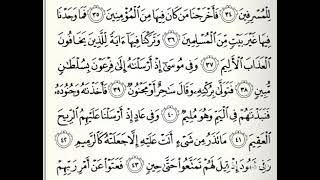 لِلْمُسْرِفِينَ ٣٤ فَأَخْرَجْنَا مَن كَانَ فِيهَا مِنَ ٱلْمُؤْمِنِينَ ٣٥ فَمَا وَجَدْنَا
فِيهَا غَيْرَ بَيْتٍ مِّنَ ٱلْمُسْلِمِينَ ٣٦ وَتَرَكْنَا فِيهَآ ءَايَةً لِّلَّذِينَ يَخَافُونَ
ٱلْعَذَابَ ٱلْأَلِيمَ ٣٧ وَفِى مُوسَىٰٓ إِذْ أَرْسَلْنَٰهُ إِلَىٰ فِرْعَوْنَ بِسُلْطَٰنٍ
مُّبِينٍ ٣٨ فَتَوَلَّىٰ بِرُكْنِهِۦ وَقَالَ سَٰحِرٌ أَوْ مَجْنُونٌ ٣٩ فَأَخَذْنَٰهُ وَجُنُودَهُۥ
فَنَبَذْنَٰهُمْ فِى ٱلْيَمِّ وَهُوَ مُلِيمٌ ٤٠ وَفِى عَادٍ إِذْ أَرْسَلْنَا عَلَيْهِمُ ٱلرِّيحَ
ٱلْعَقِيمَ ٤١ مَا تَذَرُ مِن شَىْءٍ أَتَتْ عَلَيْهِ إِلَّا جَعَلَتْهُ كَٱلرَّمِيمِ ٤٢
وَفِى ثَمُودَ إِذْ قِيلَ لَهُمْ تَمَتَّعُوا۟ حَتَّىٰ حِينٍ ٤٣ فَعَتَوْا۟ عَنْ أَمْرِ رَبِّهِمْ